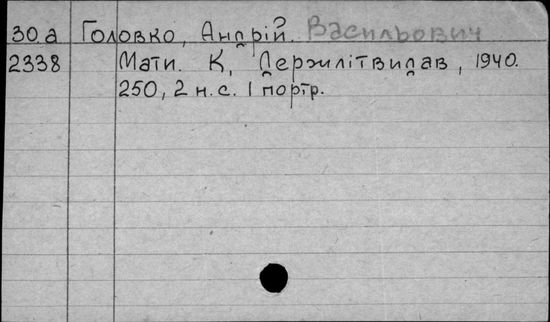 30.а Головко, Андрій. Васильович
2338 Мати. К, Держлітвидав, 1940.
250, 2 н.с. 1 портр.